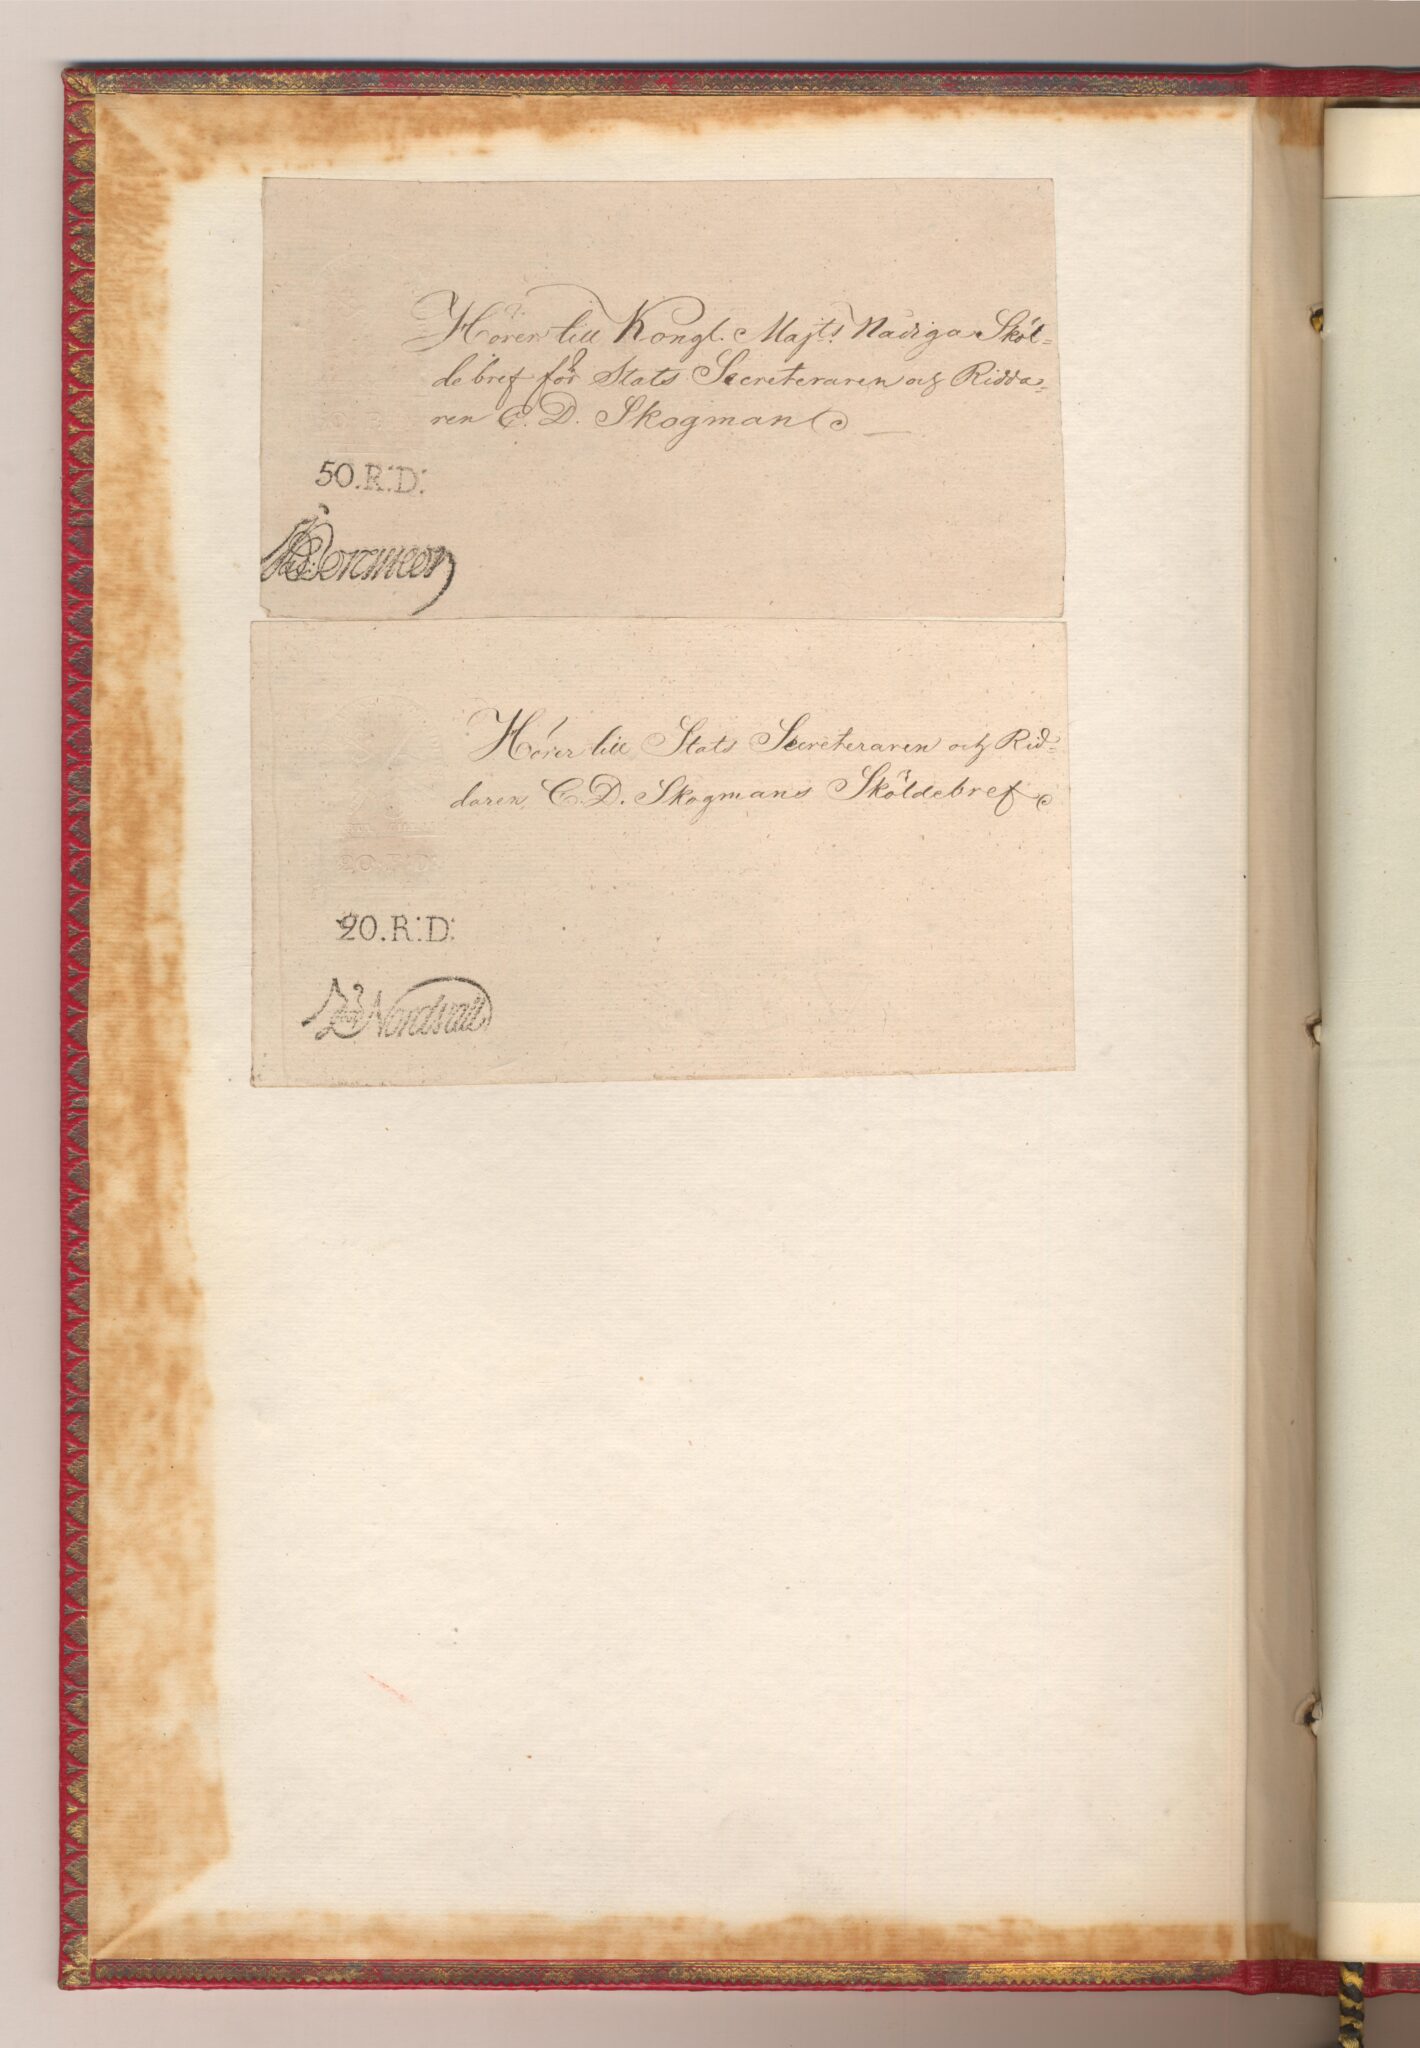 Hörer till Kongl. Majts Nådiga Sköl=
debref för Stats Secreteraren och Ridda=
ren C. D. Skogman
50.R:D:
Hörer till Stats Secreteraren och Rid=
daren C. D. Skogmans Sköldebref
20.R:D:
20.R:D:
Nordvall